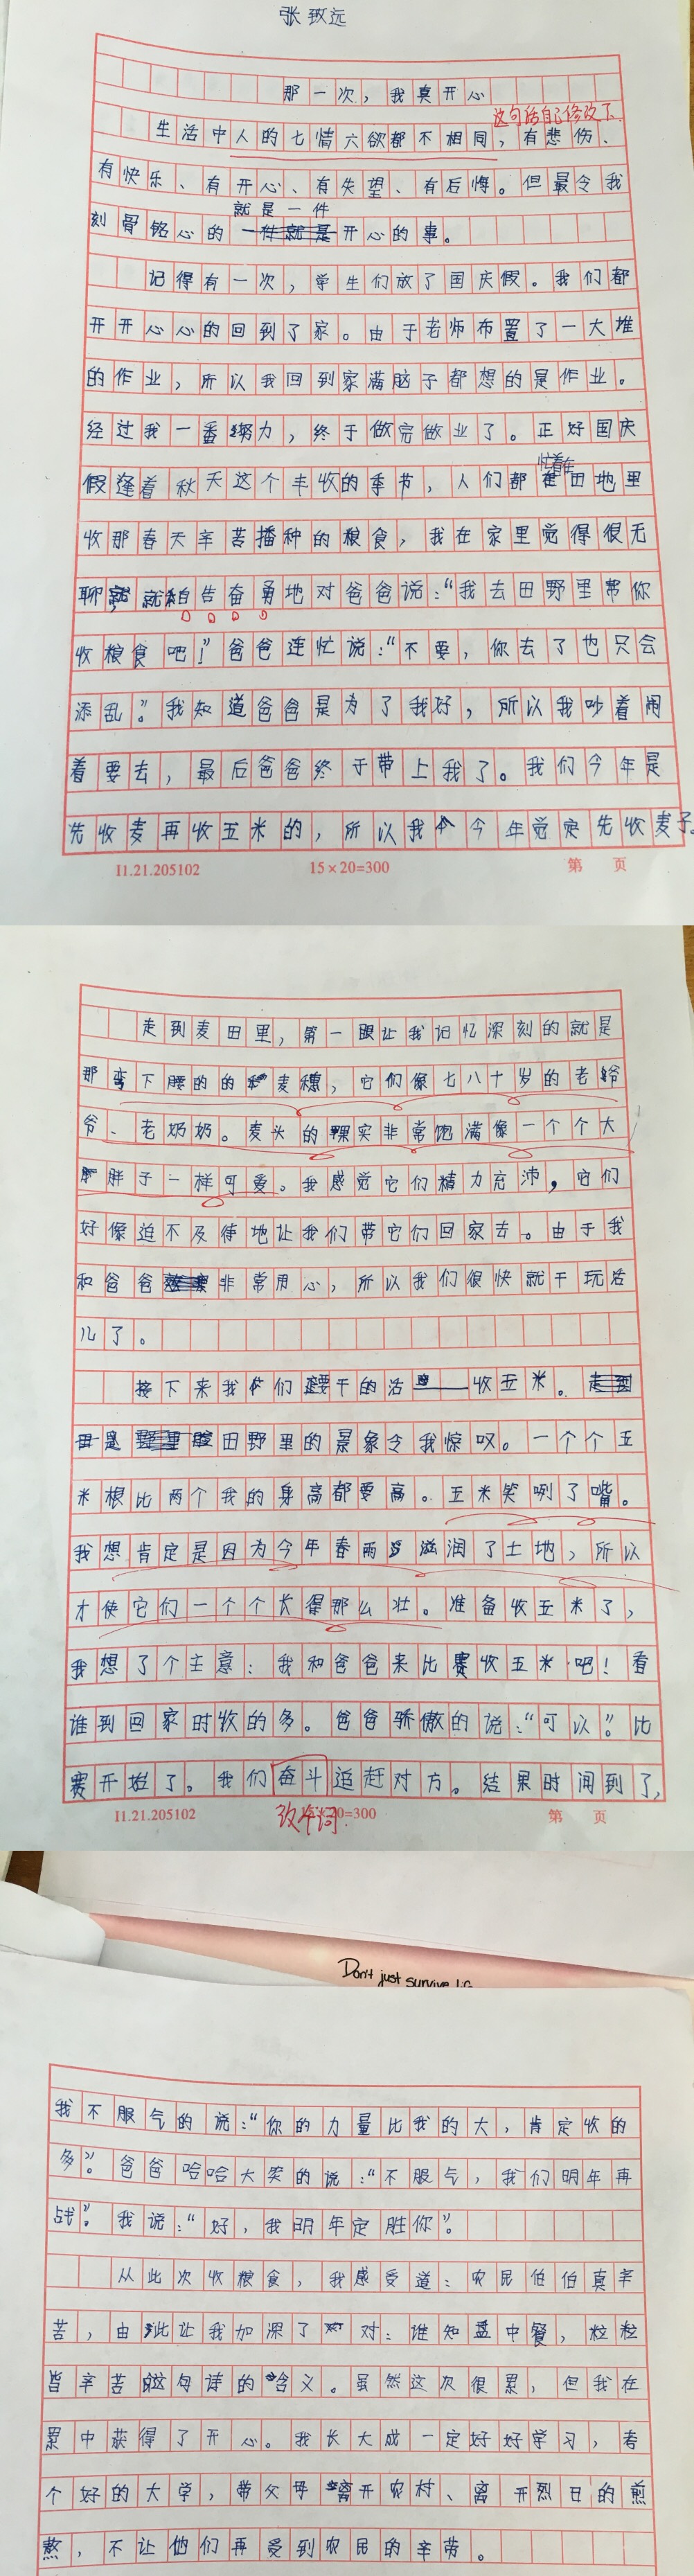 张致远
那一次，我真开心
这句话自己修改下.
生活中人的七情六欲都不相同，有悲伤、
有快乐、有开心、有失望、有后悔。但最令我
就是一件
刻骨铭心的开心的事。
记得有一次，学生们放了国庆假。我们都
开开心心的回到了家。由于老师布置了一大堆
的作业，所以我回到家满脑子都想的是作业。
经过我一番努力，终于做完做业了。正好国庆
忙着在
假逢着秋天这个丰收的季节，人们都田地里
收那春天辛苦播种的粮食，我在家里觉得很无
聊，就自告奋勇地对爸爸说：“我去田野里帮你
收粮食吧！”爸爸连忙说：“不要，你去了也只会
添乱”。我知道爸爸是为了我好，所以我吵着闹
着要去，最后爸爸终于带上我了。我们今年是
先收麦再收玉米的，所以我今年觉定先收麦子。
I1.21.205102 15×20=300 第 页
走到麦田里，第一眼让我记忆深刻的就是
那弯下腰的的麦穗，它们像七八十岁的老爷
爷、老奶奶。麦头的果实非常饱满像一个个大
胖子一样可爱。我感觉它们精力充沛，它们
好像迫不及待地让我们带它们回家去。由于我
和爸爸非常用心，所以我们很快就干玩活
儿了。
接下来我们要干的活收玉米。
田野里的景象令我惊叹。一个个玉
米根比两个我的身高都要高。玉米笑咧了嘴。
我想肯定是因为今年春雨滋润了土地，所以
才使它们一个个长得那么壮。准备收玉米了，
我想了个主意：我和爸爸来比赛收玉米吧！看
谁到回家时收的多。爸爸骄傲的说：“可以”。比
赛开始了。我们奋斗追赶对方。结果时间到了，
I1.21.205102 15×20=300 第 页
改个词.
Don't just survive
我不服气的说：“你的力量比我的大，肯定收的
多”。爸爸哈哈大笑的说：“不服气，我们明年再
战”。我说：“好，我明年定胜你”。
从此次收粮食，我感受道：农民伯伯真辛
苦，由此让我加深了对：谁知盘中餐，粒粒
皆辛苦这句诗的含义。虽然这次很累，但我在
累中获得了开心。我长大成一定好好学习，考
个好的大学，带父母离开农村、离开烈日的煎
熬，不让他们再受到农民的辛劳。